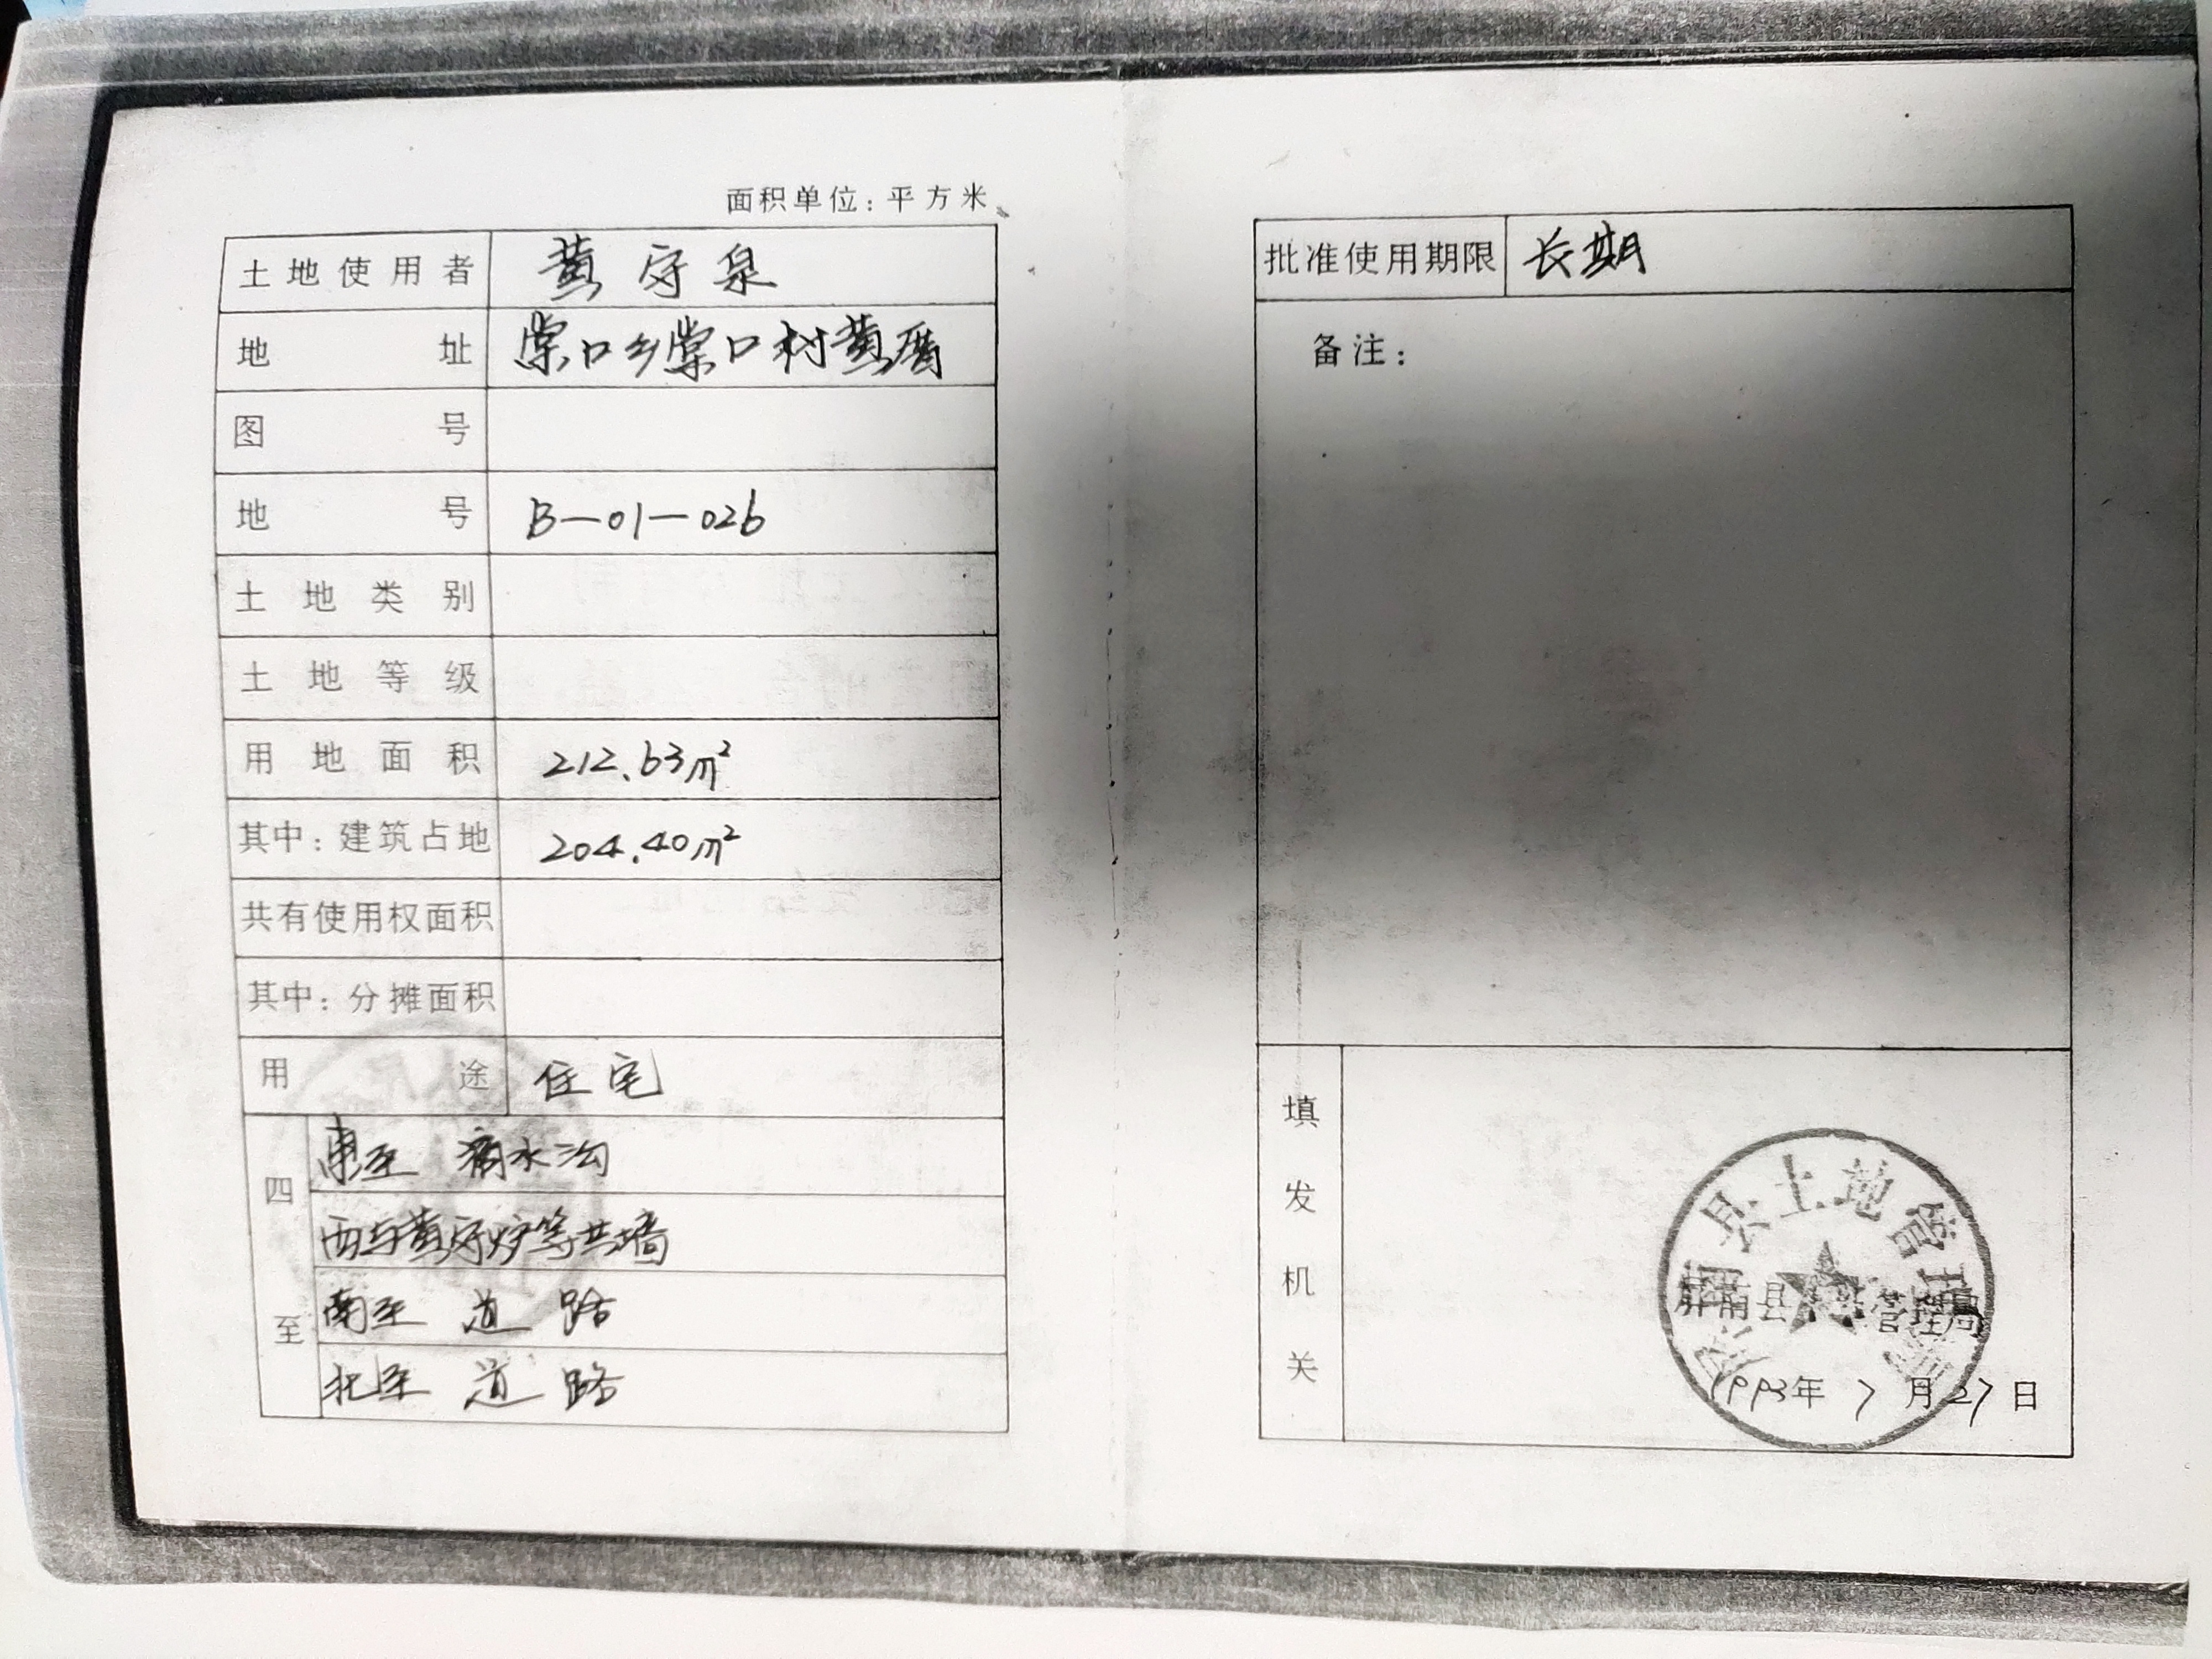 面积单位：平方米
土地使用者 黄守泉
地址 棠口乡棠口村黄厝
图号
地号 B—01—026
土地类别
土地等级
用地面积 212.63m²
其中：建筑占地 204.40m²
共有使用权面积
其中：分摊面积
用途 住宅
四至
东至 滴水沟
西与黄守炉等共墙
南至 道路
北至 道路
批准使用期限 长期
备注：
填发机关
屏南县土地管理局
屏南县土地管理局
1993年7月27日